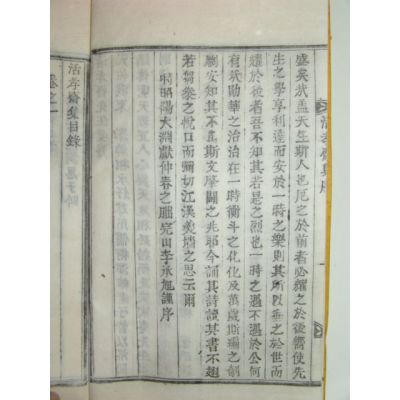 盛矣哉盖天生斯人也厄之於前者必耀之於後嚮使先
生之學亨利達而安於一時之樂則其所以垂之於世而
耀於後者吾不知其若是之烈也一時之遇不遇於公何
有哉勛華之治治在一時衡斗之化化及萬歲斯編之刱
劂安知其不爲斯文肇闢之兆耶今誦其詩讀其書不翅
若芻豢之悅口而彌切江漢羹墻之思云爾
時昭陽大淵獻仲春之朏完山李承旭謹序
活孝齋集目錄
卷之一